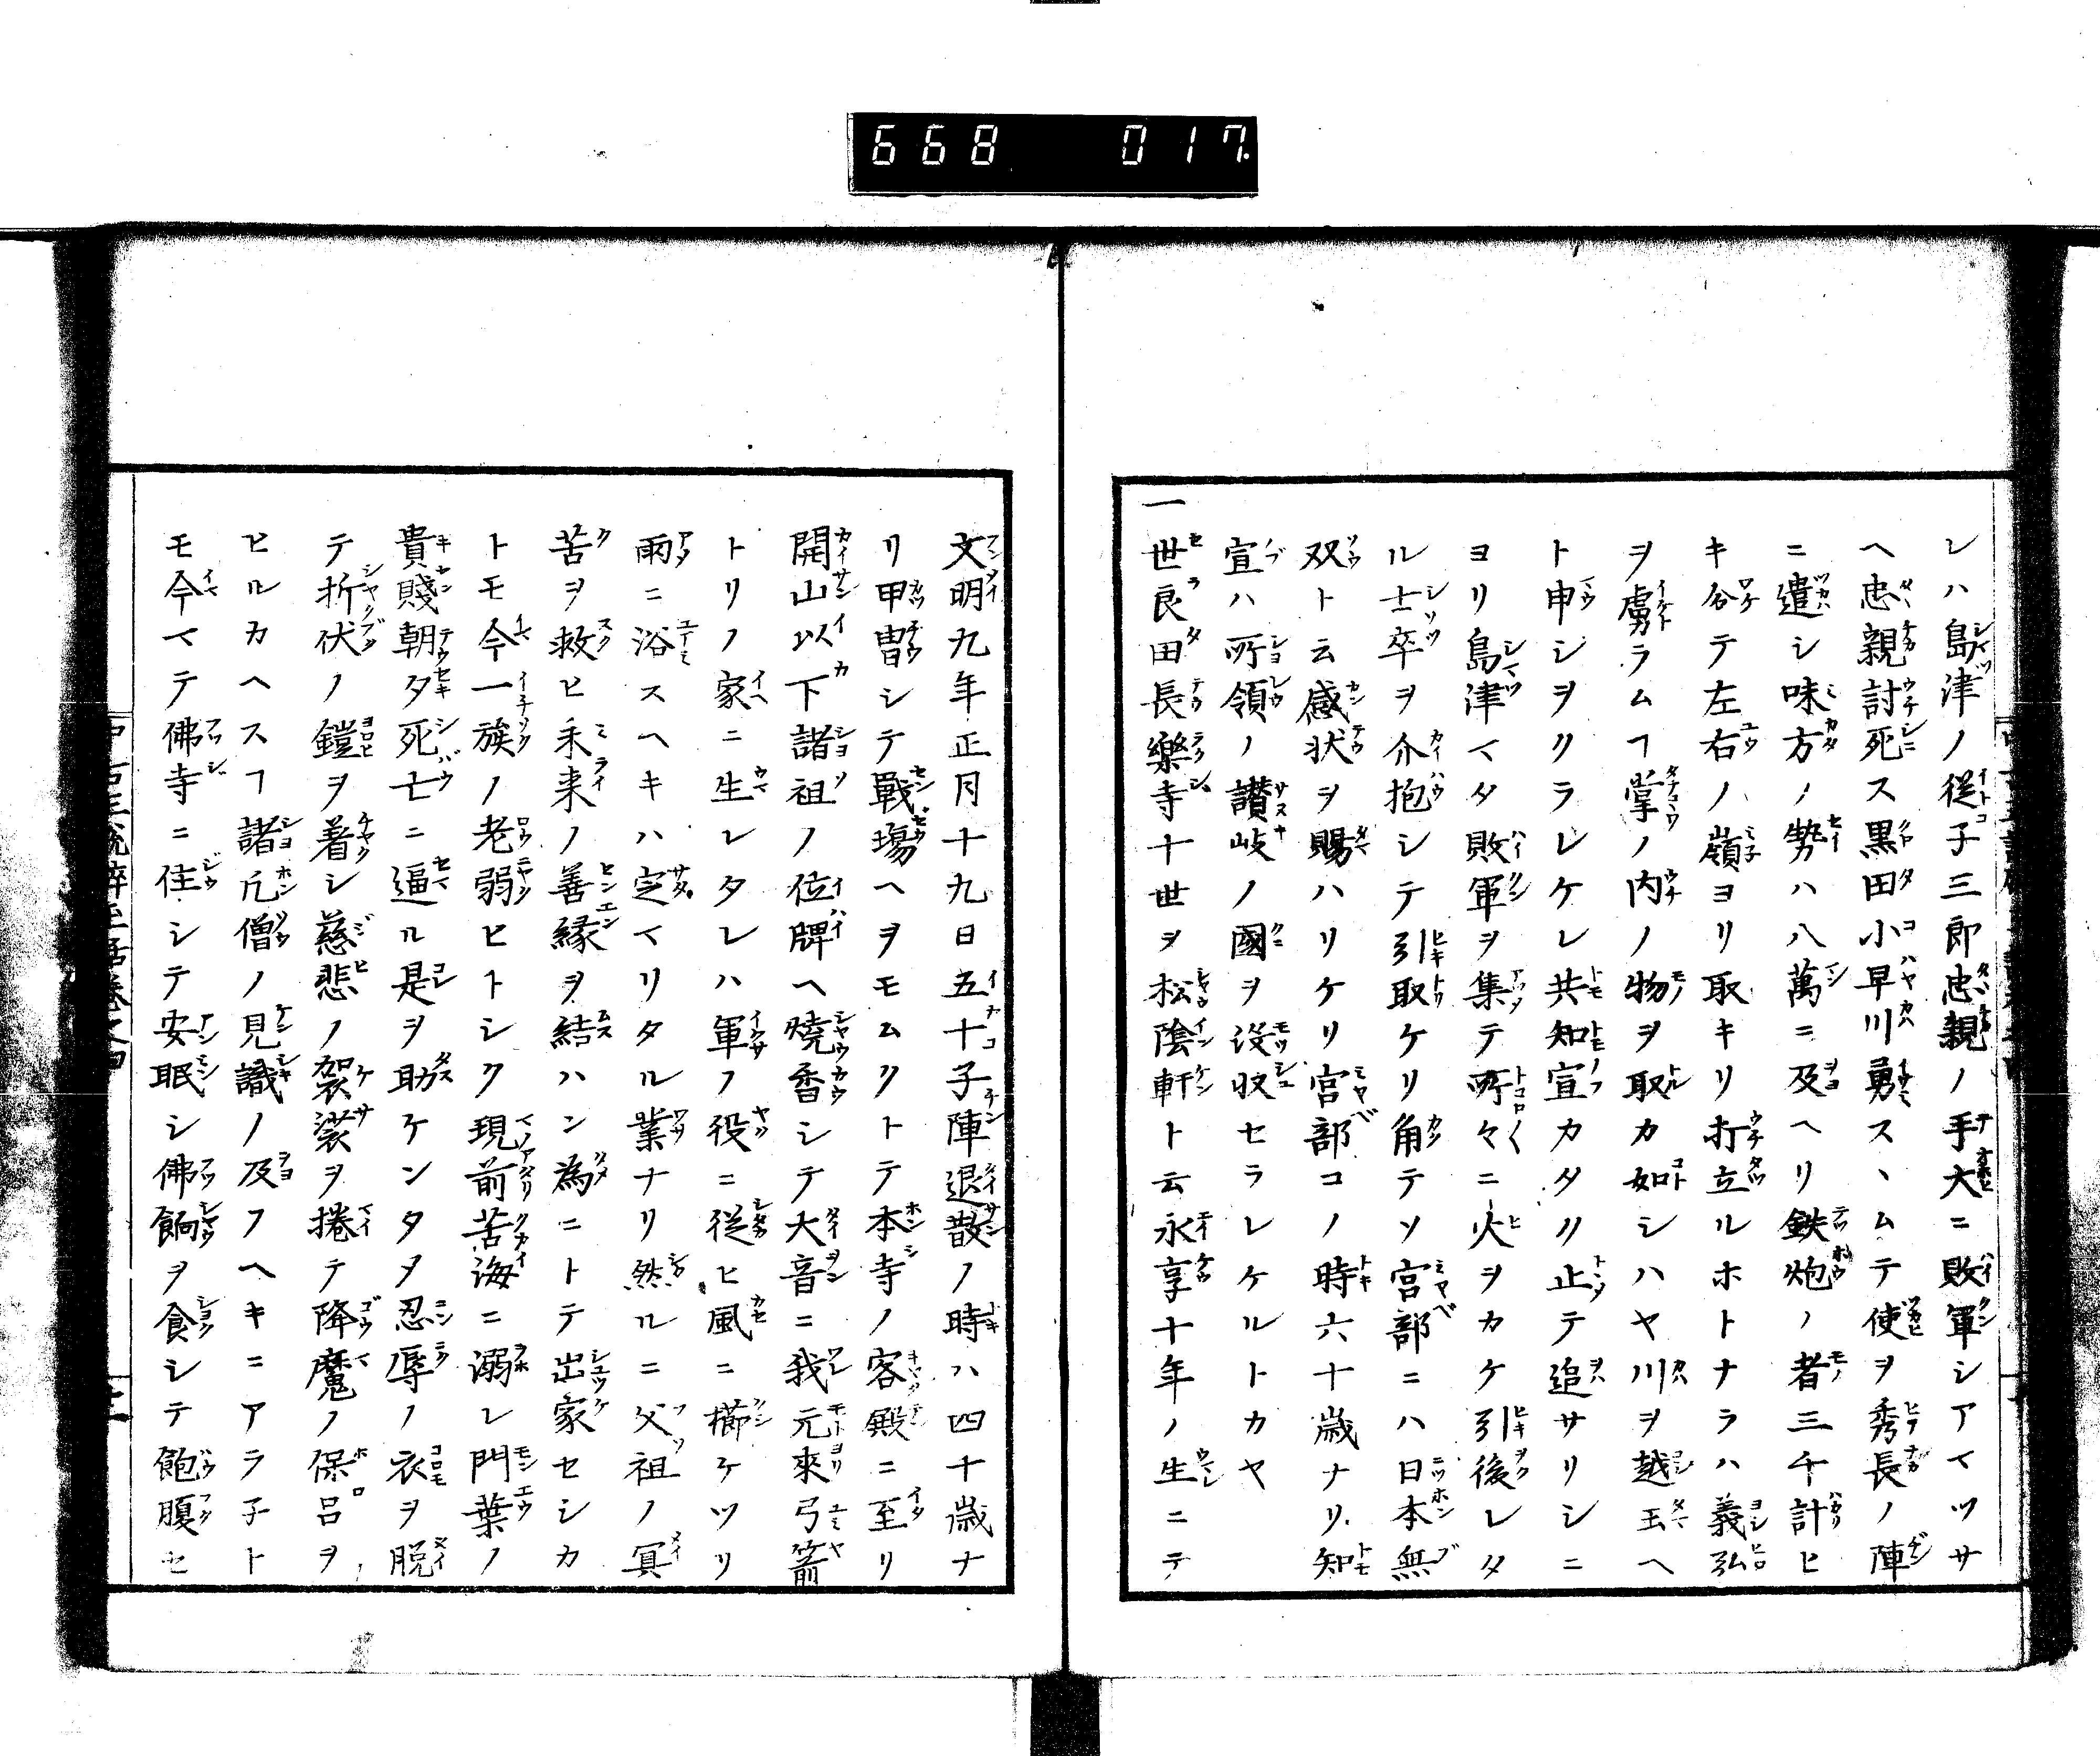 668 017.
レハ島津ノ従子三郎忠親ノ手大ニ敗軍シアマツサ
ヘ忠親討死ス黒田小早川勇スヽムテ使ヲ秀長ノ陣
ニ遣シ味方ノ勢ハ八萬ニ及ヘリ鉄炮ノ者三千計ヒ
キ谷テ左右ノ嶺ヨリ取キリ打立ルホトナラハ義弘
ヲ虜ラムヿ掌ノ内ノ物ヲ取カ如シハヤ川ヲ越玉ヘ
ト申シヲクラレケレ共知宣カタク止テ追サリシニ
ヨリ島津マタ敗軍ヲ集テ所々ニ火ヲカケ引後レタ
ル士卒ヲ介抱シテ引取ケリ角テソ宮部ニハ日本無
双ト云感状ヲ賜ハリケリ宮部コノ時六十歳ナリ知
宣ハ所領ノ讃岐ノ國ヲ没收セラレケルトカヤ
一世良田長樂寺十世ヲ松陰軒ト云永享十年ノ生ニテ
文明九年正月十九日五十子陣退散ノ時ハ四十歳ナ
リ甲冑シテ戰場ヘヲモムクトテ本寺ノ客殿ニ至リ
開山以下諸祖ノ位牌ヘ燒香シテ大音ニ我元來弓箭
トリノ家ニ生レタレハ軍ノ役ニ従ヒ風ニ櫛ケツリ
雨ニ浴スヘキハ定マリタル業ナリ然ルニ父祖ノ冥
苦ヲ救ヒ未来ノ善縁ヲ結ハン為ニトテ出家セシカ
トモ今一族ノ老弱ヒトシク現前苦海ニ溺レ門葉ノ
貴賤朝夕死亡ニ逼ル是ヲ助ケンタメ忍辱ノ衣ヲ脱
テ折伏ノ鎧ヲ着シ慈悲ノ袈裟ヲ捲テ降魔ノ保呂ヲ
ヒルカヘスヿ諸凡僧ノ見識ノ及フヘキニアラ子ト
モ今マテ佛寺ニ住シテ安眠シ佛餉ヲ食シテ飽腹セ